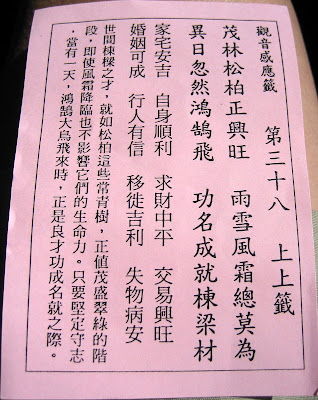 觀音感應籤 第三十八 上上籤
茂林松柏正興旺 雨雪風霜總莫為
異日忽然鴻鵠飛 功名成就棟梁材
家宅安吉 自身順利 求財中平 交易興旺
婚姻可成 行人有信 移徙吉利 失物病安
世間棟樑之才，就如松柏這些常青樹，正值茂盛翠綠的階
段，即使風霜降臨也不影響它們的生命力。只要堅定守志
，當有一天，鴻鵠大鳥飛來時，正是良才功成名就之際。